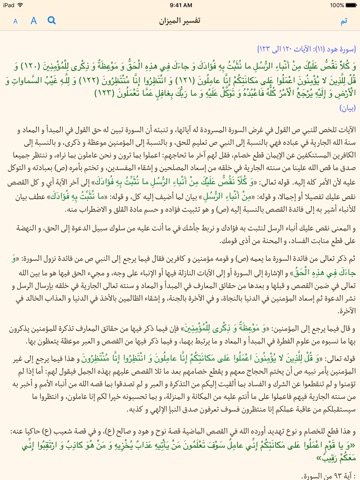 iPad
9:41 AM
100%
تم
تفسير الميزان
[سورة هود (١١): الآيات ١٢٠ الى ١٢٣]
وَ كُلًّا نَقُصُّ عَلَيْكَ مِنْ أَنْباءِ الرُّسُلِ ما نُثَبِّتُ بِهِ فُؤادَكَ وَ جاءَكَ فِي هذِهِ الْحَقُّ وَ مَوْعِظَةٌ وَ ذِكْرى لِلْمُؤْمِنِينَ (١٢٠) وَ
قُلْ لِلَّذِينَ لا يُؤْمِنُونَ اعْمَلُوا عَلى مَكانَتِكُمْ إِنَّا عامِلُونَ (١٢١) وَ انْتَظِرُوا إِنَّا مُنْتَظِرُونَ (١٢٢) وَ لِلَّهِ غَيْبُ السَّماواتِ وَ
الْأَرْضِ وَ إِلَيْهِ يُرْجَعُ الْأَمْرُ كُلُّهُ فَاعْبُدْهُ وَ تَوَكَّلْ عَلَيْهِ وَ ما رَبُّكَ بِغافِلٍ عَمَّا تَعْمَلُونَ (١٢٣)
(بيان)
الآيات تلخص للنبي ص القول في غرض السورة المسرودة له آياتها، و تنبئه أن السورة تبين له حق القول في المبدإ و المعاد و
سنة الله الجارية في عباده فهي بالنسبة إلى النبي ص تعليم للحق، و بالنسبة إلى المؤمنين موعظة و ذكرى، و بالنسبة إلى
الكافرين المستنكفين عن الإيمان قطع خصام، فقل لهم آخر ما تحاجهم: اعملوا بما ترون و نحن عاملون بما نراه، و ننتظر جميعا
صدق ما قص الله علينا من سنته الجارية في خلقه من إسعاد المصلحين و إشقاء المفسدين، و تختم بأمره (ص) بعبادته و التوكل
عليه لأن الأمر كله إليه. قوله تعالى: «وَ كُلًّا نَقُصُّ عَلَيْكَ مِنْ أَنْباءِ الرُّسُلِ ما نُثَبِّتُ بِهِ فُؤادَكَ» إلى آخر الآية أي و كل القصص
نقص عليك تفصيلا أو إجمالا، و قوله: «مِنْ أَنْباءِ الرُّسُلِ» بيان لما أضيف إليه كل، و قوله: «ما نُثَبِّتُ بِهِ فُؤادَكَ» عطف بيان
للأنباء أشير به إلى فائدة القصص بالنسبة إليه (ص) و هو تثبيت فؤاده و حسم مادة القلق و الاضطراب منه.
و المعنى نقص عليك أنباء الرسل لنثبت به فؤادك و نربط جأشك في ما أنت عليه من سلوك سبيل الدعوة إلى الحق، و النهضة
على قطع منابت الفساد، و المحنة من أذى قومك.
ثم ذكر تعالى من فائدة السورة ما يعمه (ص) و قومه مؤمنين و كافرين فقال فيما يرجع إلى النبي ص من فائدة نزول السورة: «وَ
جاءَكَ فِي هذِهِ الْحَقُّ» و الإشارة إلى السورة أو إلى الآيات النازلة فيها أو الإنباء على وجه، و مجيء الحق فيها هو ما بين الله
تعالى في ضمن القصص و قبلها و بعدها من حقائق المعارف في المبدإ و المعاد و سنته تعالى الجارية في خلقه بإرسال الرسل و
نشر الدعوة ثم إسعاد المؤمنين في الدنيا بالنجاة، و في الآخرة بالجنة، و إشقاء الظالمين بالأخذ في الدنيا و العذاب الخالد في
الآخرة.
و قال فيما يرجع إلى المؤمنين: «وَ مَوْعِظَةٌ وَ ذِكْرى لِلْمُؤْمِنِينَ» فإن فيما ذكر فيها من حقائق المعارف تذكرة للمؤمنين يذكرون
بها ما نسوه من علوم الفطرة في المبدإ و المعاد و ما يرتبط بهما، و فيما ذكر فيها من القصص و العبر موعظة يتعظون بها.
قوله تعالى: «وَ قُلْ لِلَّذِينَ لا يُؤْمِنُونَ اعْمَلُوا عَلى مَكانَتِكُمْ إِنَّا عامِلُونَ وَ انْتَظِرُوا إِنَّا مُنْتَظِرُونَ» و هذا فيما يرجع إلى غير
المؤمنين يأمر نبيه ص أن يختم الحجاج معهم و يقطع خصامهم بعد ما تلا القصص عليهم بهذه الجمل فيقول لهم: أما إذا لم
تؤمنوا و لم تنقطعوا عن الشرك و الفساد بما ألقيت إليكم من التذكرة و العبر و لم تصدقوا بما قصه الله من أنباء الأمم و أخبر به
من سنته الجارية فيهم فاعملوا على ما أنتم عليه من المكانة و المنزلة، و بما تحسبونه خيرا لكم إنا عاملون، و انتظروا ما
سيستقبلكم من عاقبة عملكم إنا منتظرون فسوف تعرفون صدق النبإ الإلهي و كذبه.
و هذا قطع للخصام و نوع تهديد أورده الله في القصص الماضية قصة نوح و هود و صالح (ع)، و في قصة شعيب (ع) حاكيا عنه:
«وَ يا قَوْمِ اعْمَلُوا عَلى مَكانَتِكُمْ إِنِّي عامِلٌ سَوْفَ تَعْلَمُونَ مَنْ يَأْتِيهِ عَذابٌ يُخْزِيهِ وَ مَنْ هُوَ كاذِبٌ وَ ارْتَقِبُوا إِنِّي
مَعَكُمْ رَقِيبٌ»
: آية ٩٣ من السورة.